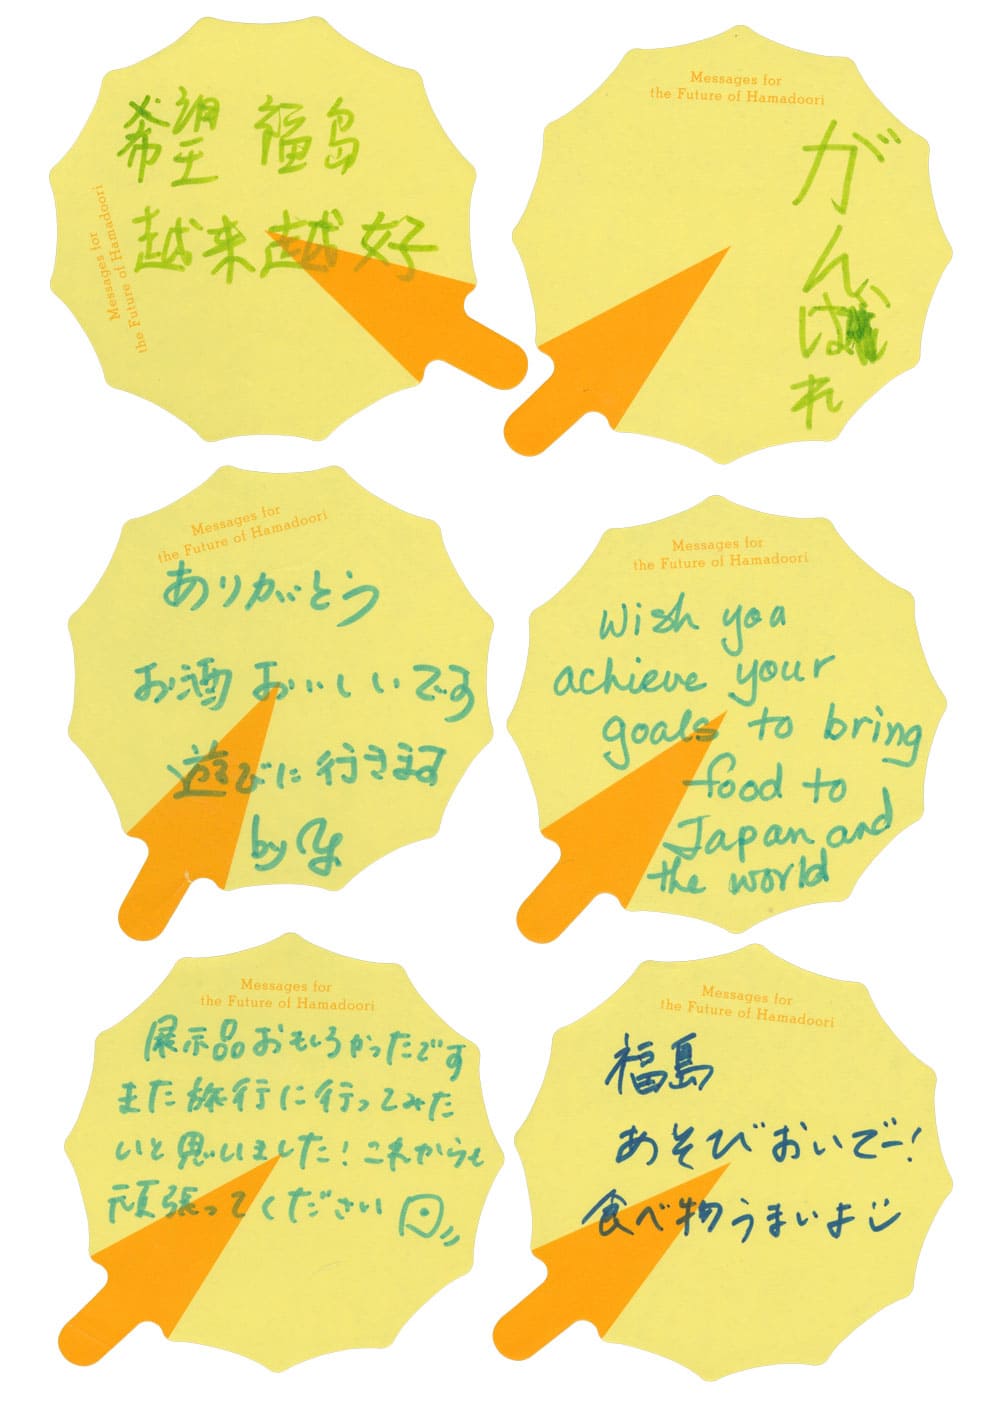 希望 福島
越来越好
Messages for
the Future of Hamadoori
Messages for
the Future of Hamadoori
がんばれ
Messages for
the Future of Hamadoori
ありがとう
お酒おいしいです
遊びに行きます
by
Messages for
the Future of Hamadoori
Wish you
achieve your
goals to bring
food to
Japan and
the world
Messages for
the Future of Hamadoori
展示品おもしろかったです
また旅行に行ってみた
いと思いました!これからも
頑張ってください
Messages for
the Future of Hamadoori
福島
あそびおいでー!
食べ物うまいよ